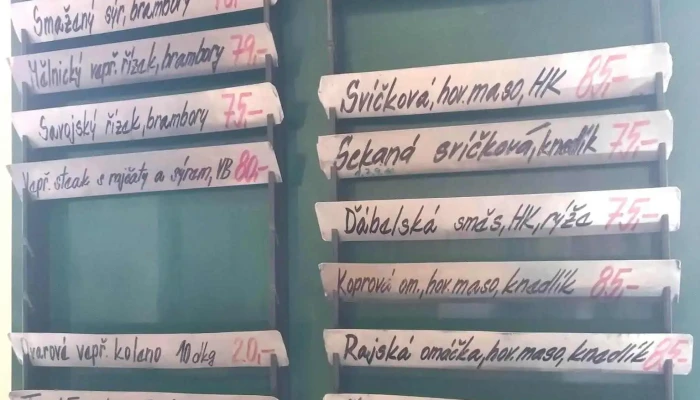 Smažený sýr, brambory
Mělnický vepř. řízek, brambory 79,-
Savojský řízek, brambory 75,-
Vepř. steak s rajčaty a sýrem, VB 80,-
vepř. koleno 10 dkg 20,-
Svíčková, hov. maso, HK 85,-
Sekaná svíčková, knedlík 75,-
Ďábelská směs, HK, rýže 75,-
Koprová om., hov. maso, knedlík 85,-
Rajská omáčka, hov. maso, knedlík 85,-